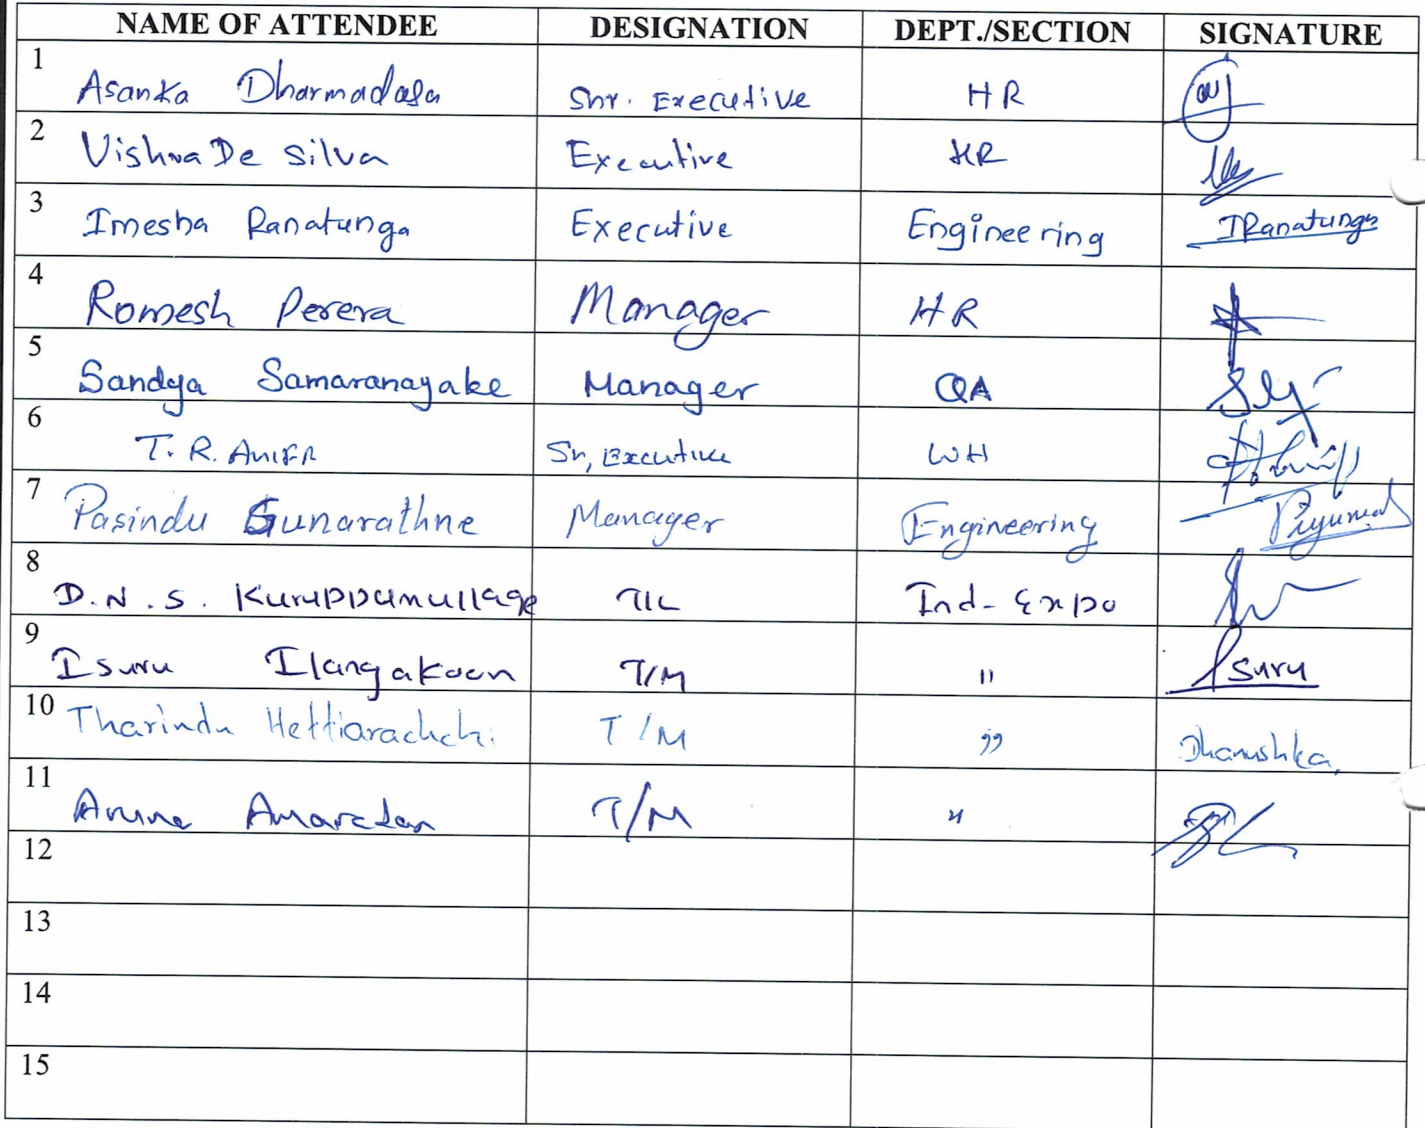 NAME OF ATTENDEE DESIGNATION DEPT./SECTION SIGNATURE
1 Asanka Dharmadasa Snr. Executive HR
2 Vishva De Silva Executive HR
3 Imesha Ranatunga Executive Engineering IRanatunga
4 Romesh Perera Manager HR
5 Sandya Samaranayake Manager QA
6 T. R. ANIFA Sn, Executive WH
7 Pasindu Gunarathne Manager Engineering
8 D.N.S. Kuruppumullage T/L Ind- Expo
9 Isuru Ilangakoon T/M " Isuru
10 Tharindu Hettiarachchi T/M " Dhanushka,
11 T/M "
12
13
14
15